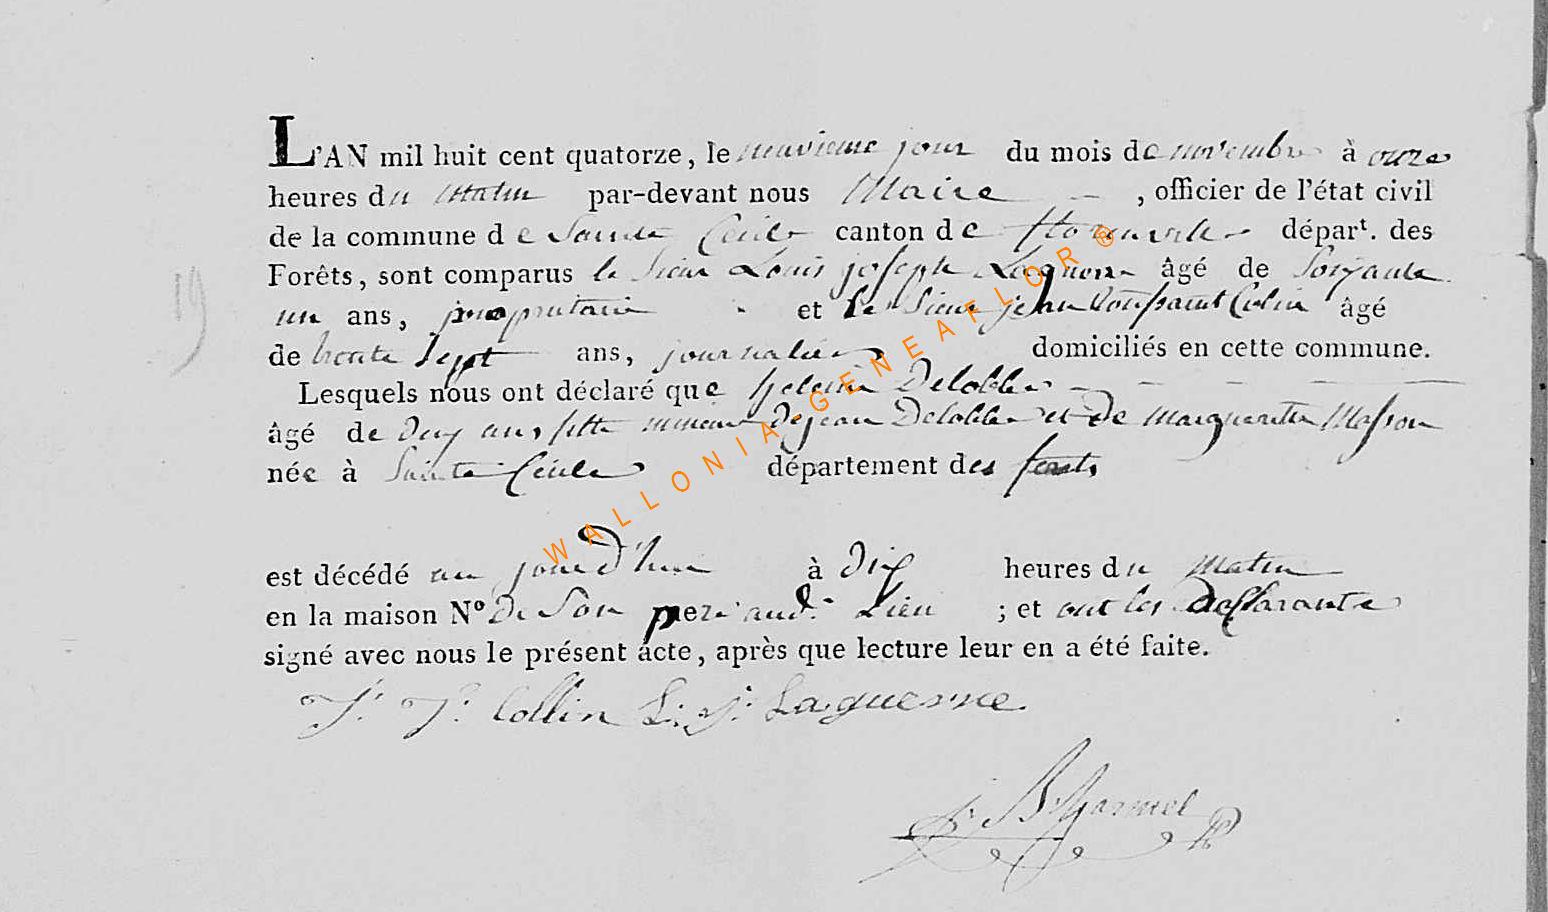 L'AN mil huit cent quatorze, le neuvieme jour du mois de novembre à onze
heures du matin par-devant nous Maire , officier de l'état civil
de la commune de Sainte Cecile canton de florenville dépar^t. des
Forêts, sont comparus le Sieur Louis joseph Laguerre âgé de Soixante
un ans, proprietaire et le Sieur jean Toussaint Colin âgé
de trente Sept ans, journalier domiciliés en cette commune.
Lesquels nous ont déclaré que Delobbe
âgé de ans fille mineure de jean Delobbe et de Marguerite Masson
née à Sainte Cecile département des forets
est décédé au jourd'hui à dix heures du Matin
en la maison N° De Son pere audt. Lieu ; et ont les declarants
signé avec nous le présent acte, après que lecture leur en a été faite.
J. T. Collin L. J. Laguerre
19
WALLONIA GENEAFLOR ®